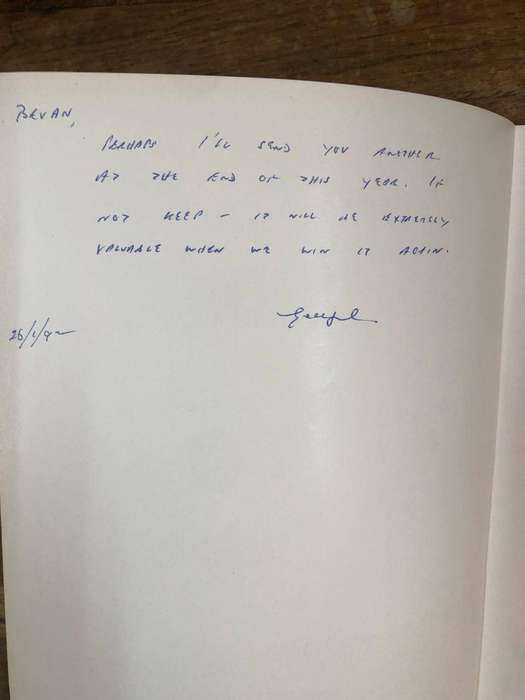 BEVAN,
PERHAPS I'LL SEND YOU ANOTHER
AT THE END OF THIS YEAR. IF
NOT KEEP – IT WILL BE EXTREMELY
VALUABLE WHEN WE WIN IT AGAIN.
26/1/92